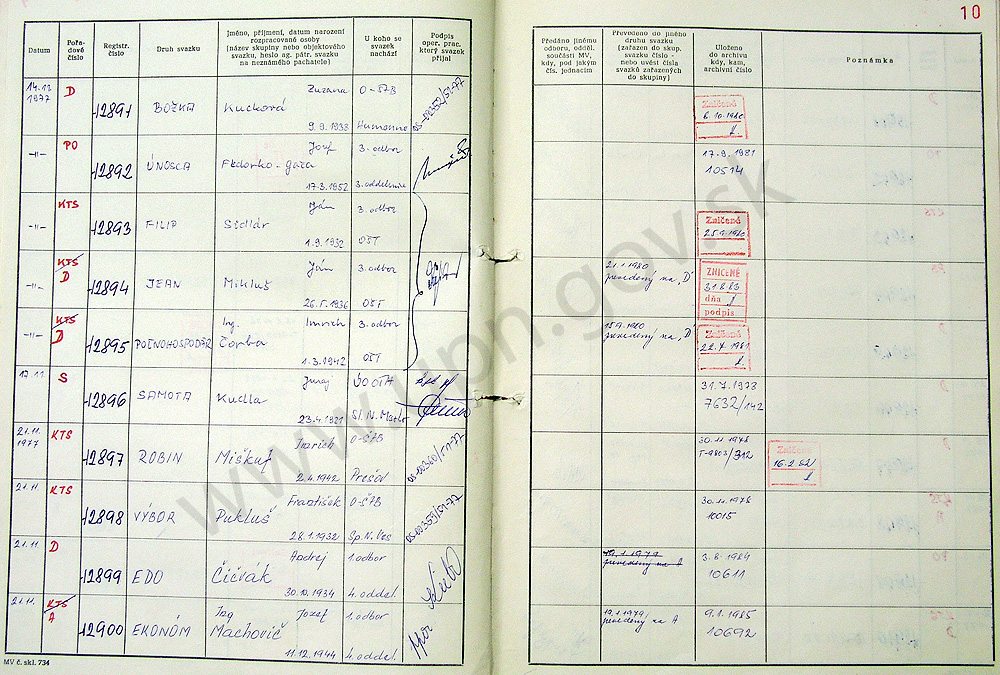 Datum
Pořa-
dové
číslo
Registr.
číslo
Druh svazku
Jméno, příjmení, datum narození
rozpracované osoby
(název skupiny nebo objektového
svazku, heslo ag. pátr. svazku
na neznámého pachatele)
U koho se
svazek
nachází
Podpis
oper. prac.
který svazek
přijal
14.11
1977
D
12891
BOŽKA
Zuzana
Kucková
9.9.1938
O-ŠtB
Humenné
-11-
PO
12892
ÚNOSCA
Jozef
Fedorko-gaza
17.3.1952
3. odbor
3. oddelenie
-11-
KTS
12893
FILIP
Ján
Sedlár
1.9.1932
3. odbor
OŠT
-11-
KTS
D
12894
JEAN
Ján
Mikluš
26.5.1936
3. odbor
OŠT
-11-
KTS
D
12895
POĽNOHOSPODÁR
Ing. Imrich
Čorba
1.3.1942
3. odbor
OŠT
17.11.
S
12896
SAMOTA
Juraj
Kudla
23.4.1921
21.11.
1977
KTS
12897
ROBIN
Miškuf
2.4.1942
O-ŠtB
Prešov
21.11.
KTS
12898
VÝBOR
František
Pukluš
28.1.1932
O-ŠtB
Sp.N.Ves
21.11.
D
12899
EDO
Andrej
Čičvák
30.10.1934
1. odbor
4. oddel.
21.11.
KTS
A
12900
EKONÓM
Ing Jozef
Machovič
11.12.1944
1. odbor
4. oddel.
MV č. skl. 734
10
Předáno jinému
odboru, odděl.
součásti MV,
kdy, pod jakým
čís. jednacím
Převedeno do jiného
druhu svazku
(zařazen do skup.
svazku číslo -
nebo uvést čísla
svazků zařazených
do skupiny)
Uloženo
do archivu
kdy, kam,
archivní číslo
Poznámka
Zničené
6.10.1980
17.9.1981
10514
Zničené
21.1.1980
prevedený na „D"
ZNIČENÉ
31.8.83
dňa
podpis
prevedený na „D"
Zničené
22.7.1981
31.7.1978
7632/142
30.11.1978
T-9803/312
Zničené
16.2.82
30.11.1978
10015
19.1.1979
prevedený na A
3.8.1984
10611
19.1.1979
9.1.1985
10692
www.upn.gov.sk